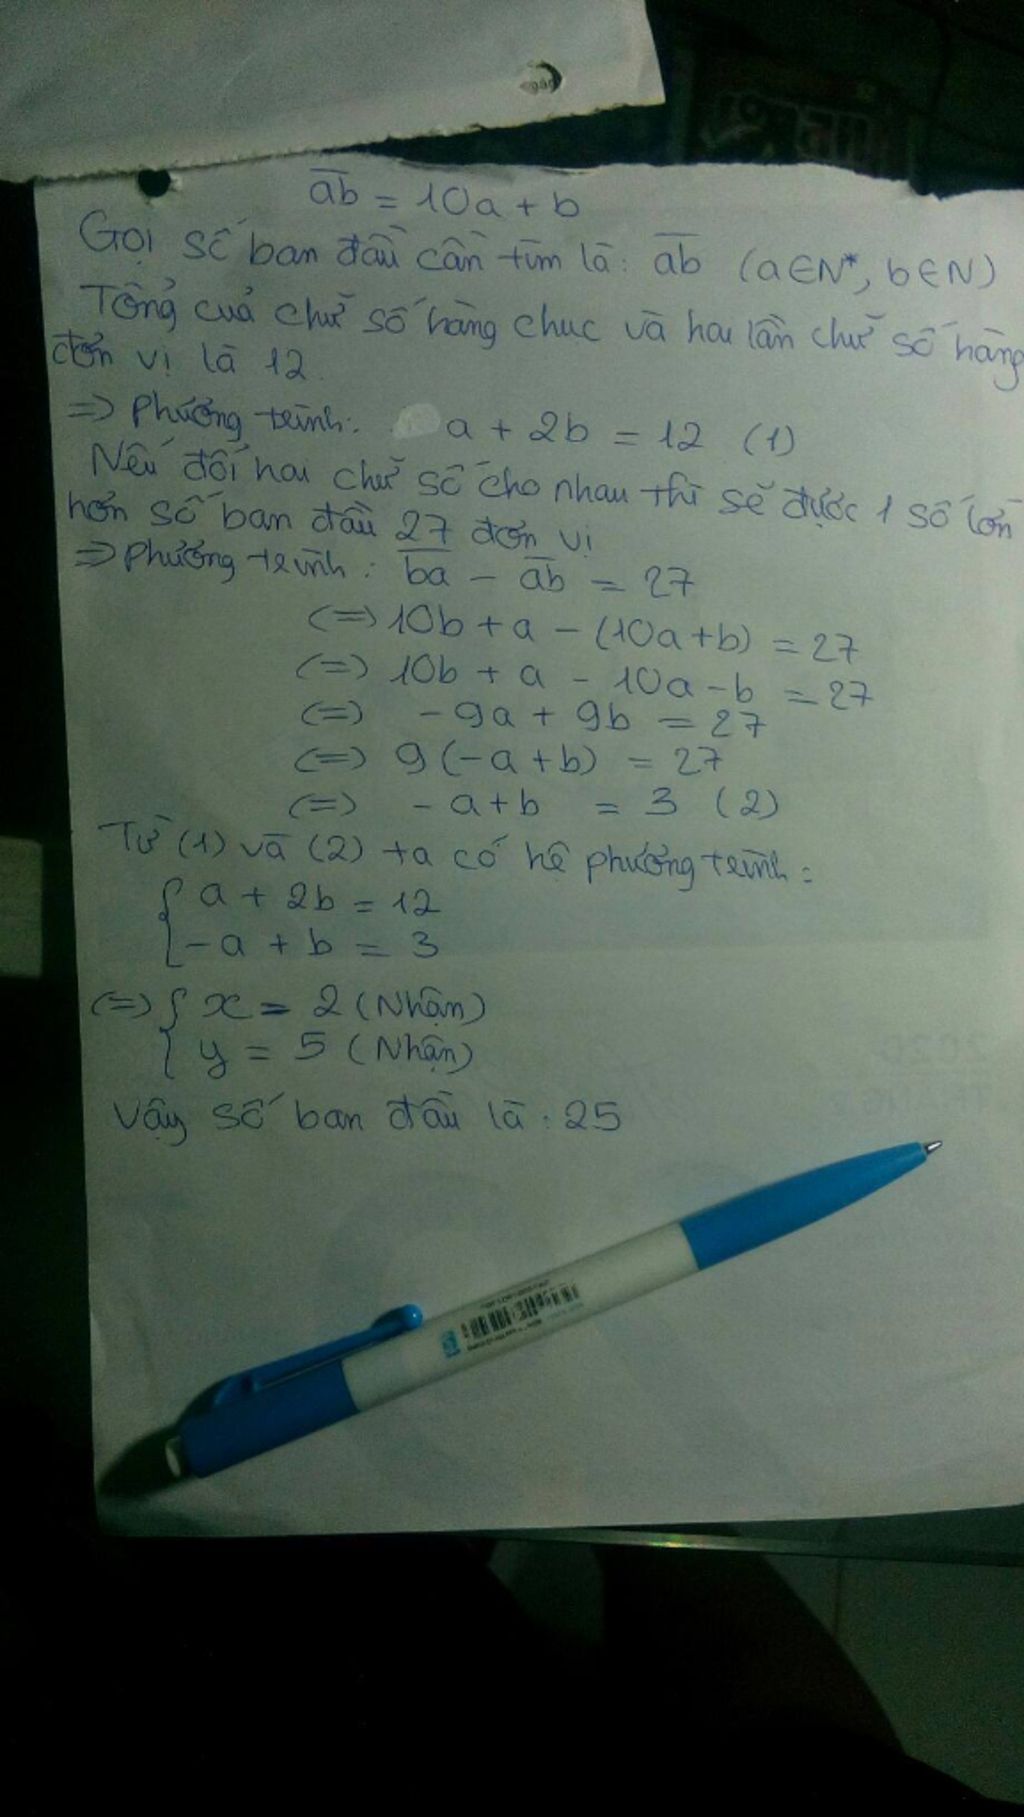 ab = 10a + b
Gọi số ban đầu cần tìm là: ab (a∈N*, b∈N)
Tổng của chữ số hàng chục và hai lần chữ số hàng
đơn vị là 12.
=> Phương trình: a + 2b = 12 (1)
Nếu đổi hai chữ số cho nhau thì sẽ được 1 số lớn
hơn số ban đầu 27 đơn vị
=> Phương trình: ba - ab = 27
(=) 10b + a - (10a+b) = 27
(=) 10b + a - 10a - b = 27
(=) -9a + 9b = 27
(=) 9(-a+b) = 27
(=) -a+b = 3 (2)
Từ (1) và (2) ta có hệ phương trình:
{ a + 2b = 12
-a + b = 3
(=) { x = 2 (Nhận)
y = 5 (Nhận)
Vậy số ban đầu là: 25